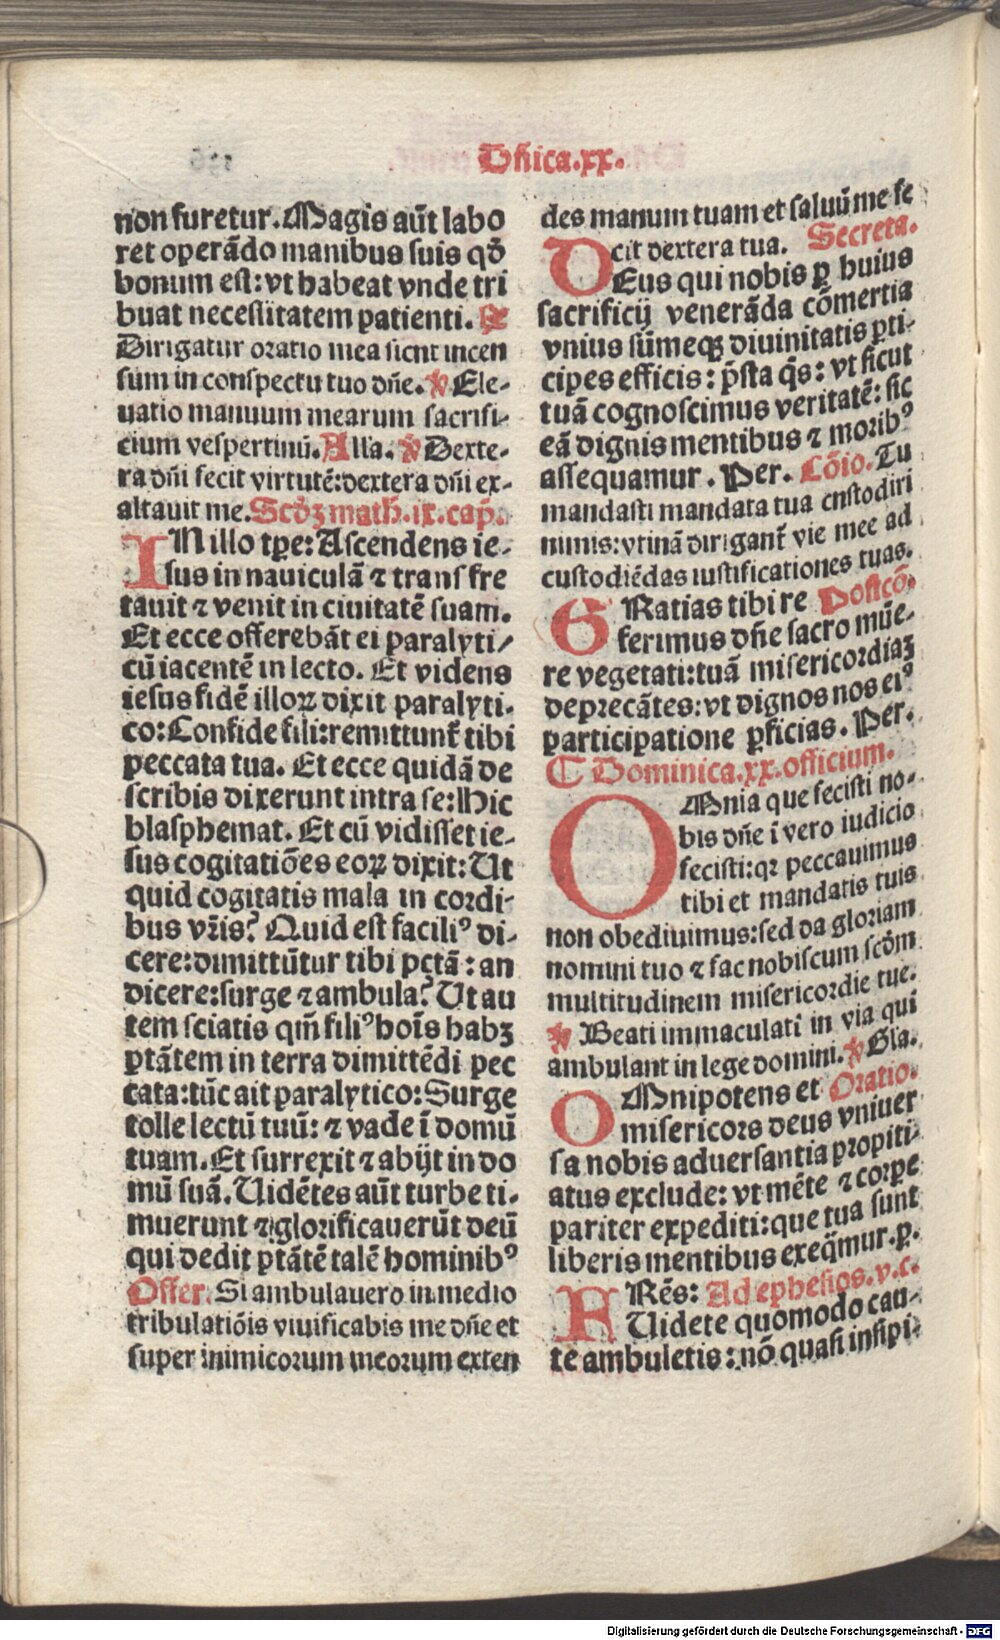 Dñica.xx.
non furetur. Magis aũt labo
ret operãdo manibus suis qđ
bonum est: vt habeat vnde tri
buat necessitatem patienti. ℞
Dirigatur oratio mea sicut incen
sum in conspectu tuo dñe. ℣ Ele-
uatio manuum mearum sacrifi-
cium vespertinũ. Alla. ℣ Dexte-
ra dñi fecit virtutẽ: dextera dñi ex-
altauit me. Scđꝫ math̃. ix. cap̃.
IN illo tp̃e: Ascendens ie-
sus in nauiculã ⁊ transfre
tauit ⁊ venit in ciuitatẽ suam.
Et ecce offerebãt ei paralyti/
cũ iacentẽ in lecto. Et videns
iesus fidẽ illoꝝ dixit paralyti-
co: Confide fili: remittunt̃ tibi
peccata tua. Et ecce quidã de
scribis dixerunt intra se: Hic
blasphemat. Et cũ vidisset ie-
sus cogitatiões eoꝝ dixit: Ut
quid cogitatis mala in cordi-
bus vr̃is? Quid est faciliꝰ di-
cere: dimittũtur tibi pctã: an
dicere: surge ⁊ ambula? Ut au
tem sciatis qm̃ filiꝰ hoĩs habꝫ
ptãtem in terra dimittẽdi pec
cata: tũc ait paralytico: Surge
tolle lectũ tuũ: ⁊ vade ĩ domũ
tuam. Et surrexit ⁊ abijt in do
mũ suã. Uidẽtes aũt turbe ti-
muerunt ⁊ glorificauerũt deũ
qui dedit ptãtẽ talẽ hominibꝰ
Offer. Si ambulauero in medio
tribulatiõis viuificabis me dñe et
super inimicorum meorum exten
des manum tuam et saluũ me fe
cit dextera tua. Secreta.
DEus qui nobis ꝑ huius
sacrificij venerãda cõmertia
vnius sũmeqꝫ diuinitatis ꝑti-
cipes efficis: p̃sta q̃s: vt sicut
tuã cognoscimus veritatẽ: sic
eã dignis mentibus ⁊ moribꝰ
assequamur. Per. Cõio. Tu
mandasti mandata tua custodiri
nimis: vtinã dirigant̃ vie mee ad
custodiẽdas iustificationes tuas.
GRatias tibi re Postcõ.
ferimus dñe sacro mũe-
re vegetati: tuã misericordiaꝫ
deprecãtes: vt dignos nos eiꝰ
participatione ꝑficias. Per.
¶ Dominica. xx. officium.
OMnia que fecisti no-
bis dñe ĩ vero iudicio
fecisti: qꝛ peccauimus
tibi et mandatis tuis
non obediuimus: sed da gloriam
nomini tuo ⁊ fac nobiscum scđm
multitudinem misericordie tue.
℣ Beati immaculati in via qui
ambulant in lege domini. ℣ Gla.
OMnipotens et Oratio.
misericors deus vniuer
sa nobis aduersantia propiti-
atus exclude: vt mẽte ⁊ corꝑe
pariter expediti: que tua sunt
liberis mentibus exeq̃mur. p.
FRẽs: Ad ephesios. v. c.
Uidete quomodo cau-
te ambuletis: nõ quasi insipi-
Digitalisierung gefördert durch die Deutsche Forschungsgemeinschaft - DFG